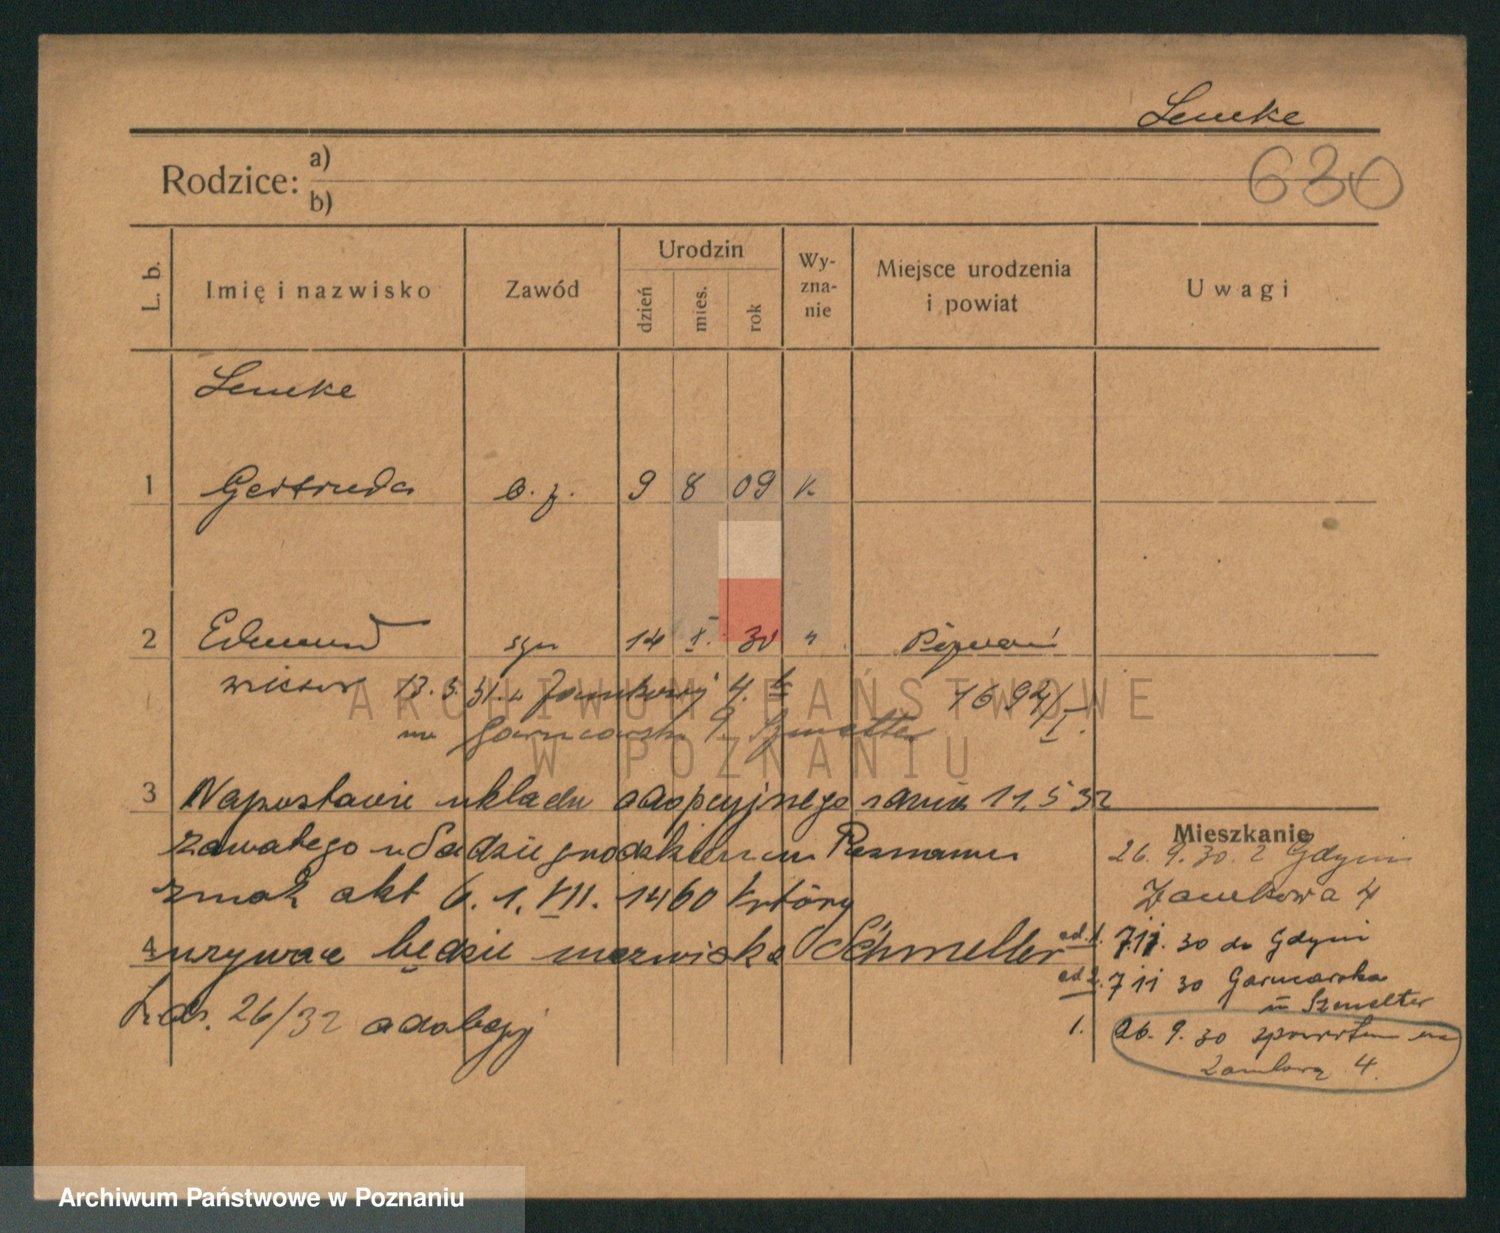 Lemke
Rodzice: a)
b)
630
L. b.
Imię i nazwisko
Zawód
Urodzin
dzień
mies.
rok
Wy-
zna-
nie
Miejsce urodzenia
i powiat
Uwagi
Lemke
1 Gertruda b. z. 9 8 09 k.
2 Edmund syn 14 X. 30 " Poznań
13. 5. 31. z Zamkowej 4.
1692/I.
na Garncarska 9. Szmelter
3 Na postawie układu adopcyjnego z dnia 11. 5 32
zawartego w Sądzie grodzkiem w Poznaniu
znak akt 6. 1. VII. 1460 który
4 używać będzie nazwiska Schmelter
26/32 adopcyj
Mieszkanie
26. 9. 30. z Gdyni
Zamkowa 4
ad. 1. 7 11. 30 do Gdyni
ad 2. 7 11 30 Garncarska
u Szmelter
1. 26. 9. 30 spowrotem na
Zamkową 4.
ARCHIWUM PAŃSTWOWE
W POZNANIU
Archiwum Państwowe w Poznaniu